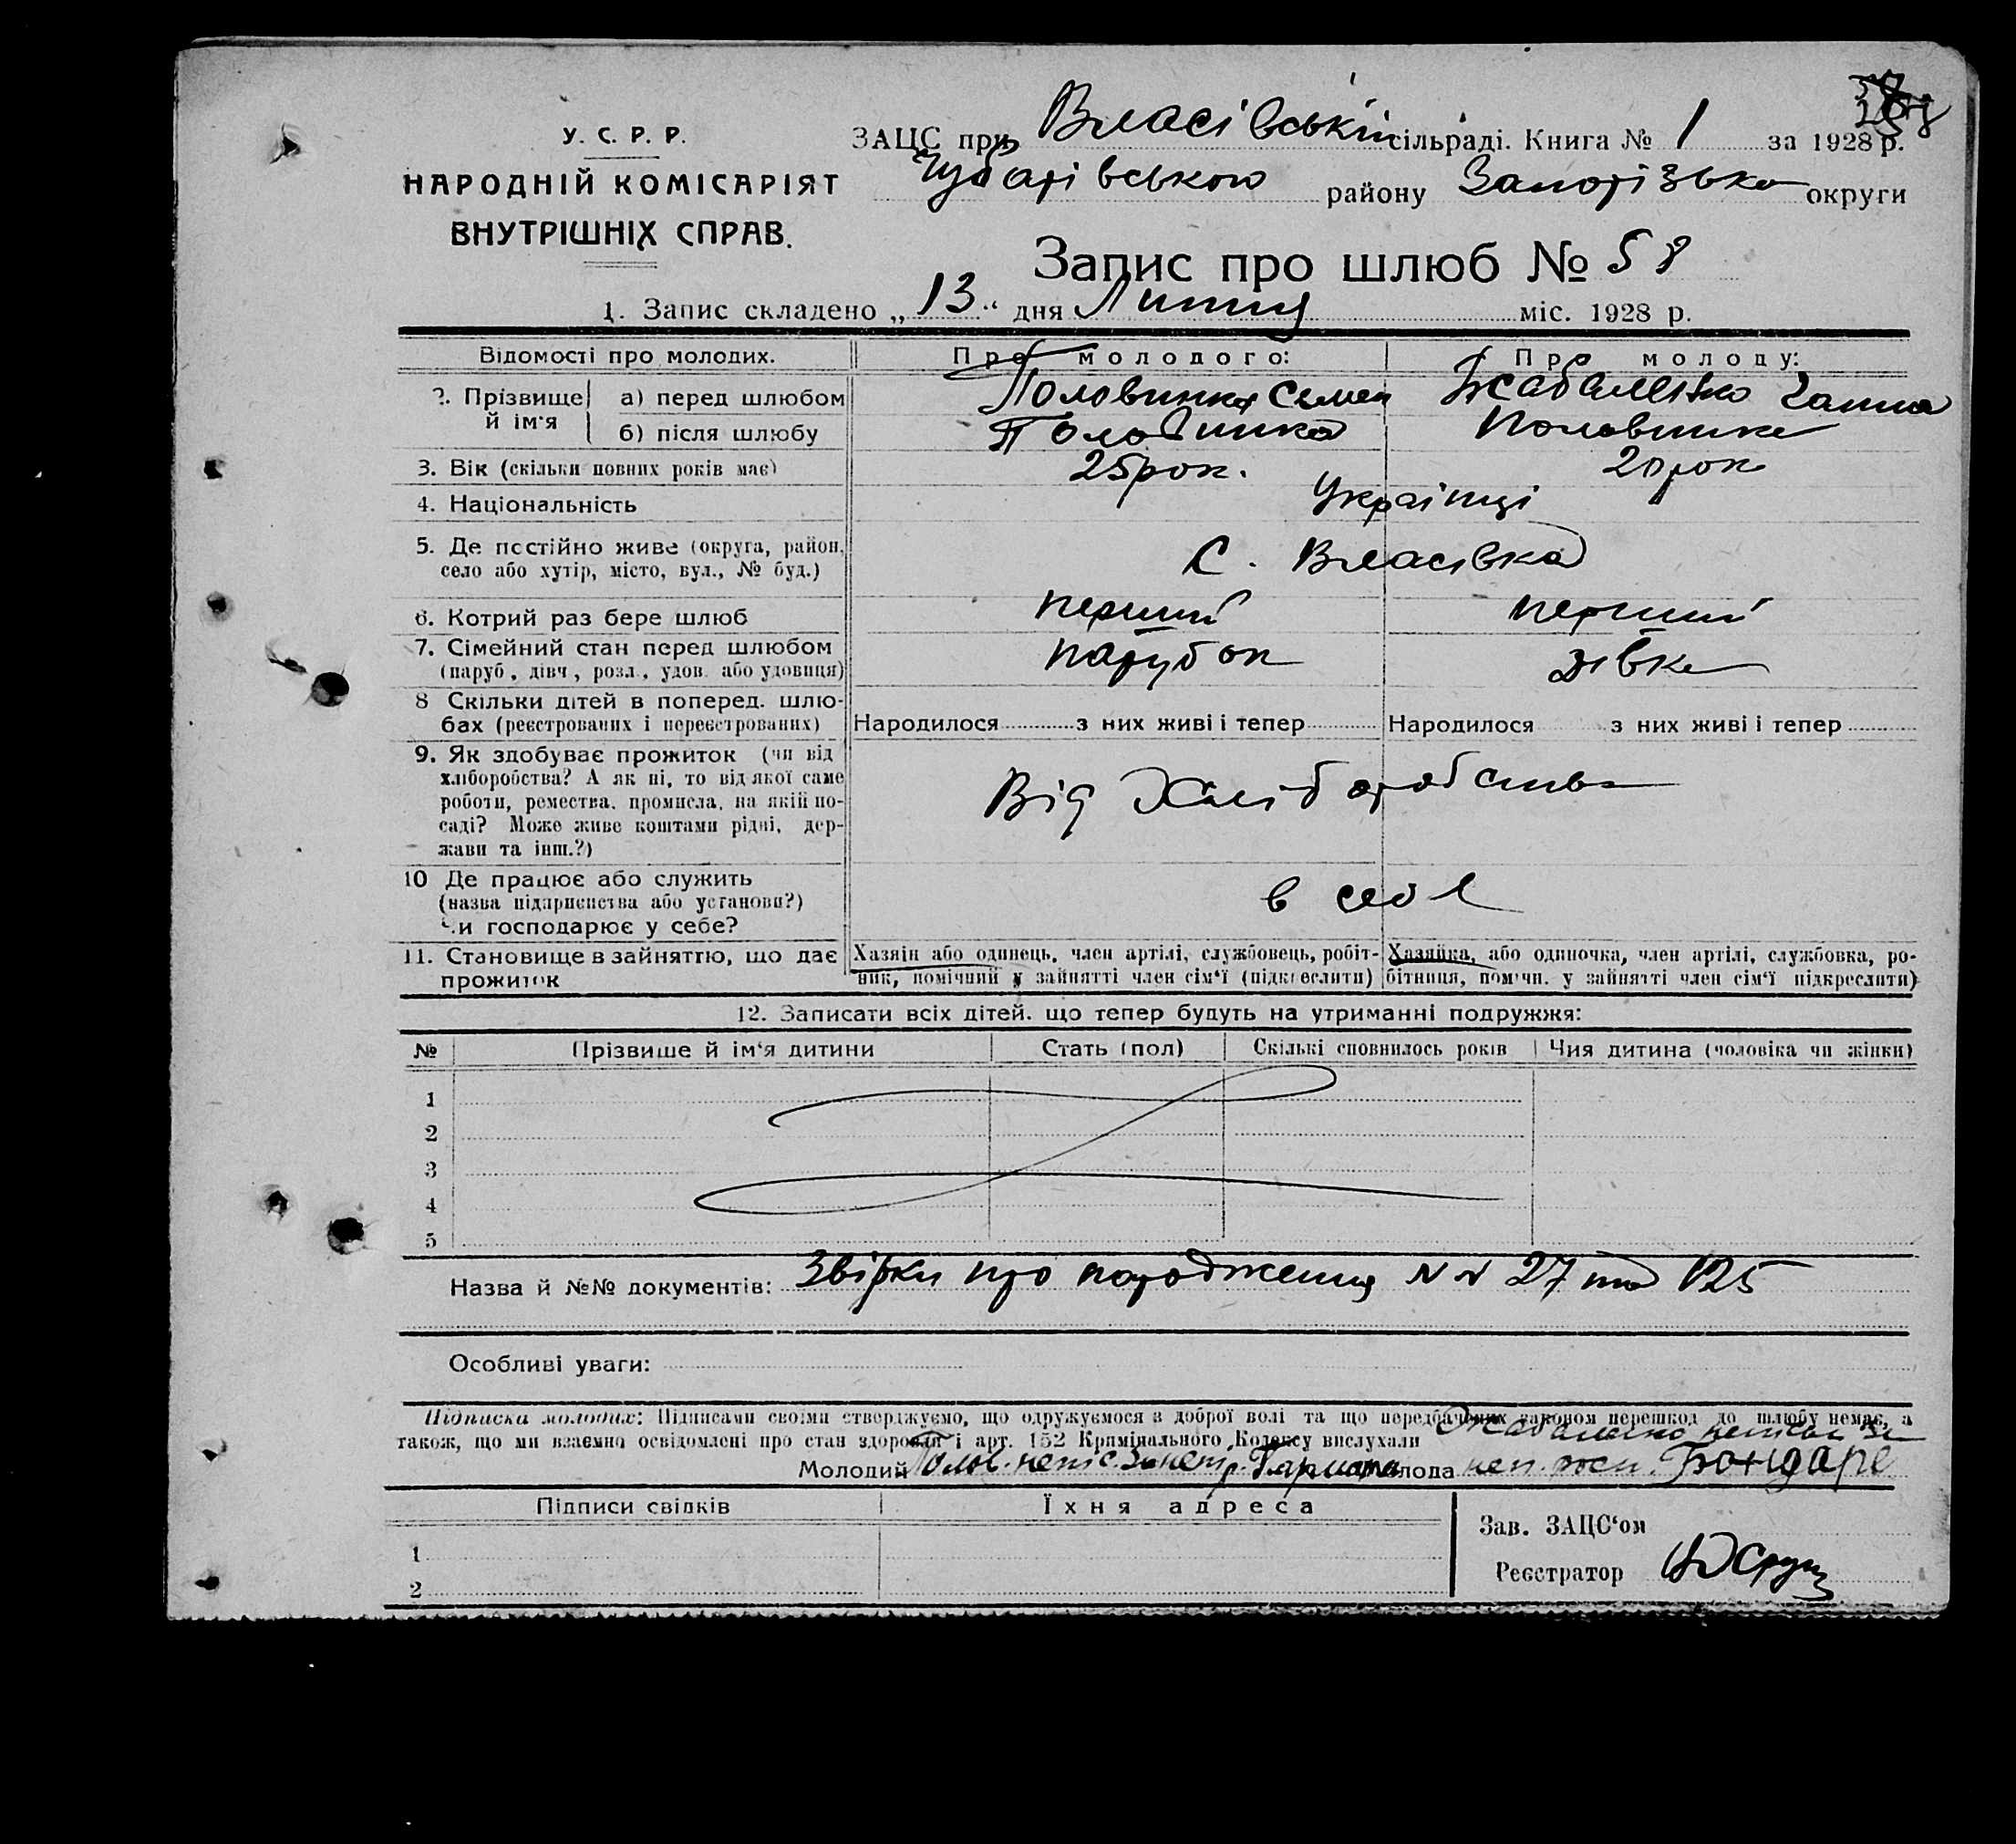 У. С. Р. Р.
НАРОДНІЙ КОМІСАРІЯТ
ВНУТРІШНІХ СПРАВ.
ЗАЦС при Власівській сільраді. Книга № 1 за 1928 р.
Чубарівського району Запорізько округи
Запис про шлюб № 58
1. Запис складено „ 13 “ дня Липня міс. 1928 р.
Відомості про молодих. Про молодого: Про молоду:
2. Прізвище й ім‘я а) перед шлюбом Половинка Семен Жабаленко Ганна
б) після шлюбу Половинка Половинка
3. Вік (скільки повних років має) 25 рок. 20 рок
4. Національність Українці
5. Де постійно живе (округа, район, село або хутір, місто, вул., № буд.) С. Власівка
6. Котрий раз бере шлюб перший перший
7. Сімейний стан перед шлюбом парубок дівка
(паруб, дівч, розл., удов. або удовиця)
8 Скільки дітей в поперед. шлю-
бах (реєстрованих і нереєстрованих) Народилося з них живі і тепер Народилося з них живі і тепер
9. Як здобуває прожиток (чи від
хліборобства? А як ні, то від якої саме
роботи, ремества, промисла, на якій по-
саді? Може живе коштами рідні, дер-
жави та інш.?)
Від Хліборобства
10 Де працює або служить
(назва підприємства або установи?)
Чи господарює у себе?
в себе
11. Становище в зайняттю, що дає
прожиток
Хазяїн або одинець, член артілі, службовець, робіт-
ник, помічний у зайнятті член сім‘ї (підкреслити)
Хазяйка, або одиночка, член артілі, службовка, ро-
бітниця, помічн. у зайнятті член сім‘ї підкреслити)
12. Записати всіх дітей, що тепер будуть на утриманні подружжя:
№ Прізвише й ім‘я дитини Стать (пол) Скількі сповнилось років Чия дитина (чоловіка чи жінки)
1
2
3
4
5
Назва й №№ документів: Звірки про народження N N 27 та 125
Особливі уваги:
Підписка молодих: Підписами своїми стверджуємо, що одружуємося з доброї волі та що передбачених законом перешкод до шлюбу немає, а
також, що ми взаємно освідомлені про стан здоровля і арт. 152 Кримінального Кодексу вислухали
Молодий Молода
Підписи свідків Їхня адреса
1
2
Зав. ЗАЦС‘ом
Реєстратор